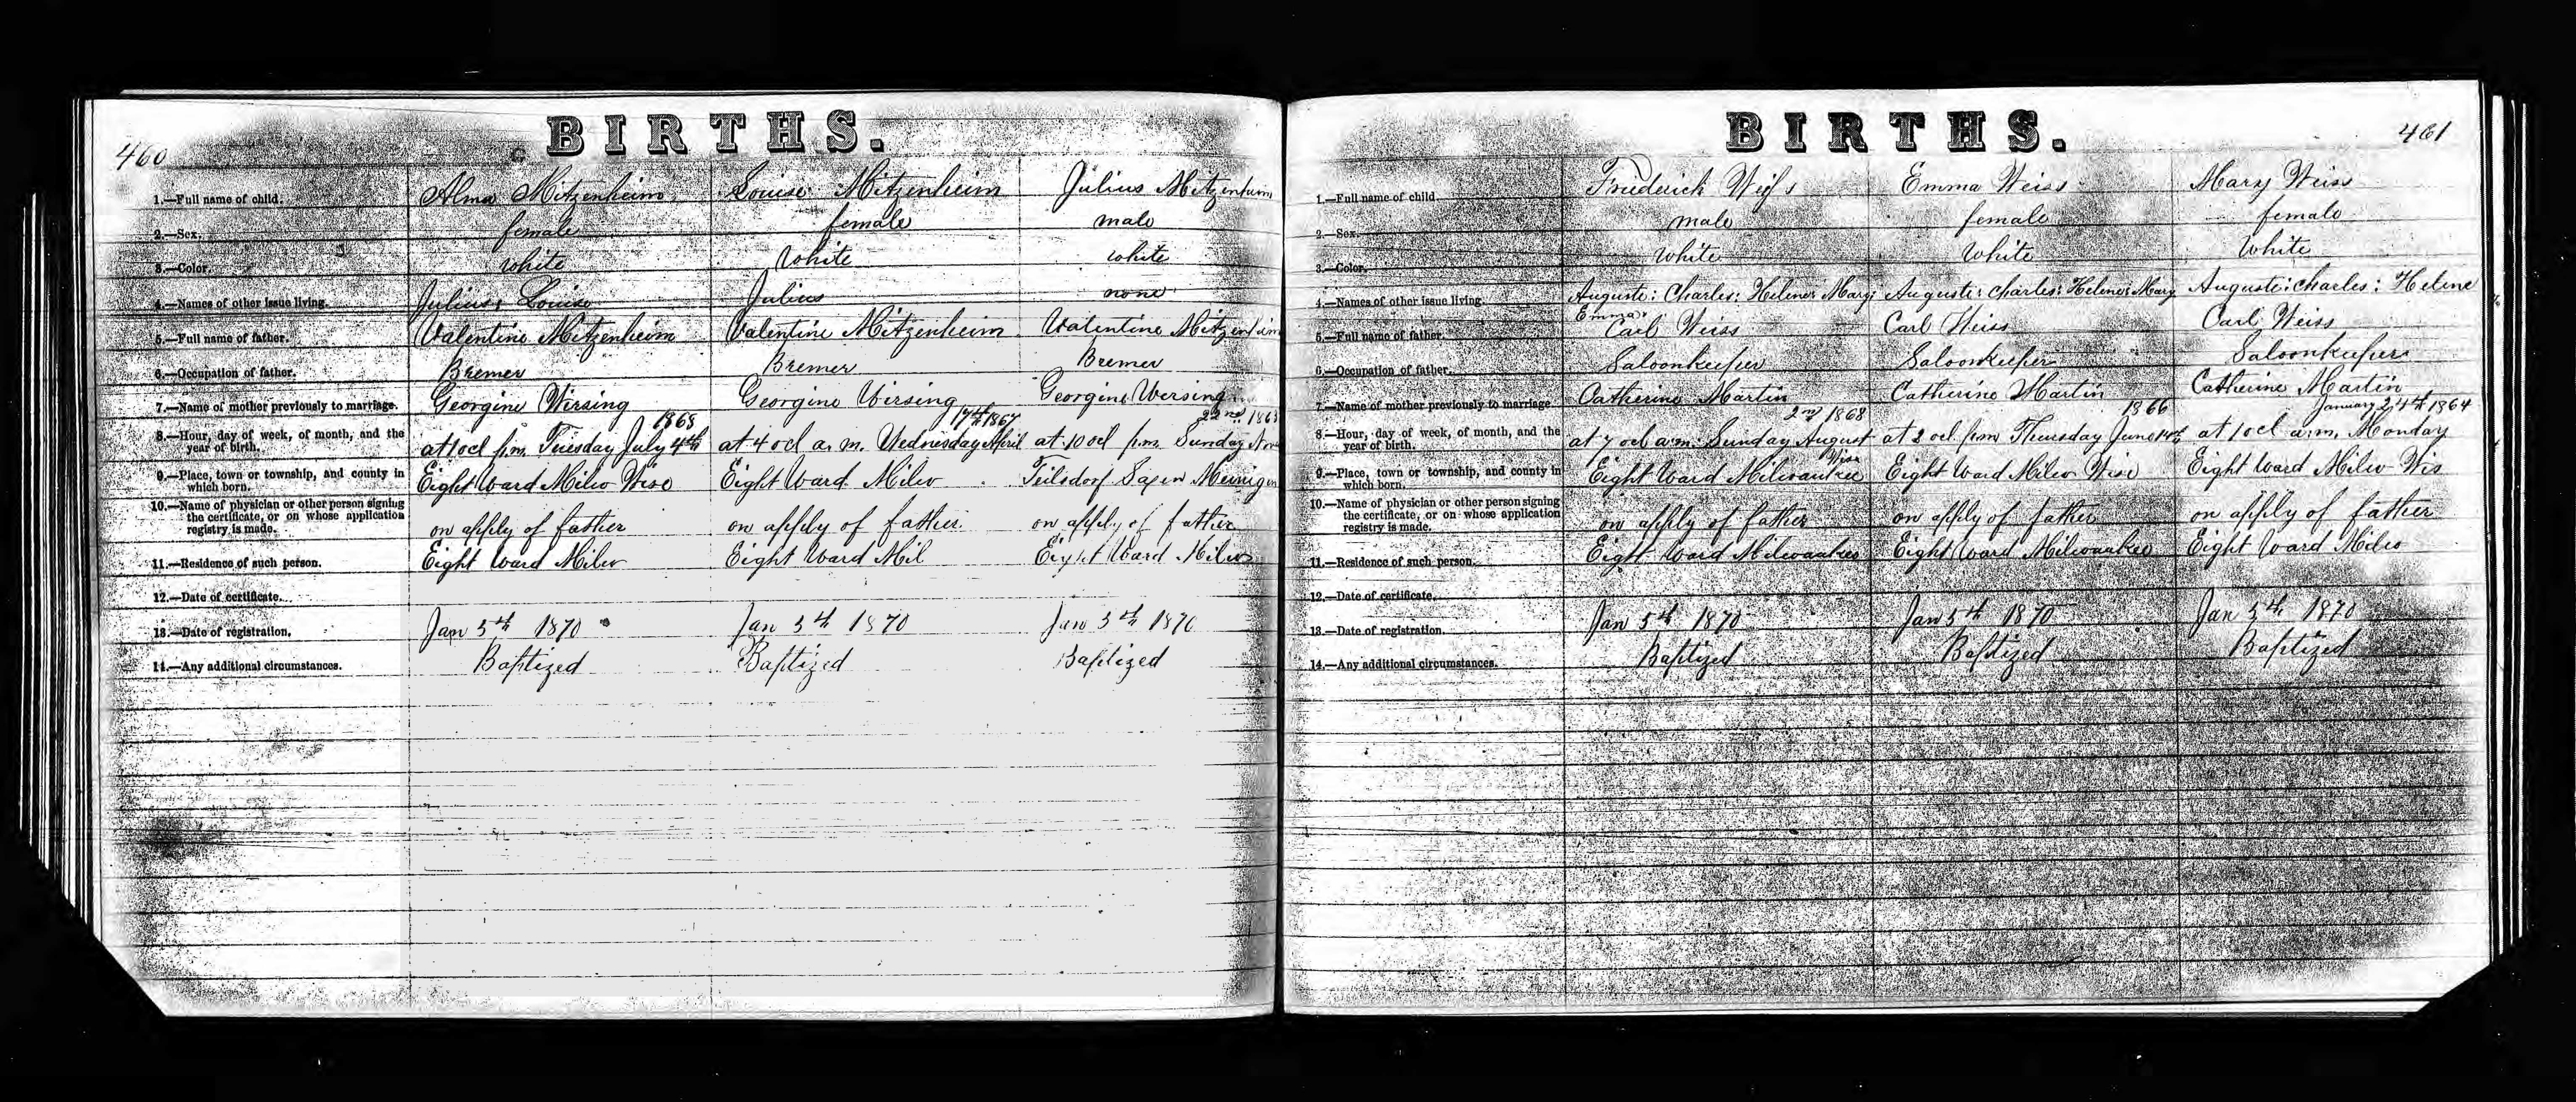 460
BIRTHS.
1.—Full name of child. Alma Mitzenheim Louise Mitzenheim Julius Mitzenheim
2.—Sex. female female male
3.—Color. white White white
4.—Names of other issue living. Julius, Louise Julius none
5.—Full name of father. Valentine Mitzenheim Valentine Mitzenheim Valentine Mitzenheim
6.—Occupation of father. Bremer Bremer Bremer
7.—Name of mother previously to marriage. Georgine Wirsing Georgine Wirsing Georgine Wirsing
1868 17th 1867 22nd 1863
8.—Hour, day of week, of month, and the year of birth. at 1 ocl p.m. Tuesday July 4th at 4 ocl a. m. Wednesday April at 10 ocl p.m. Sunday Nov
9.—Place, town or township, and county in which born. Eight Ward Milw Wisc Eight Ward Milw Saxen Meinigen
10.—Name of physician or other person signing the certificate, or on whose application registry is made. on apply of father on apply of father on apply of father
11.—Residence of such person. Eight Ward Milw Eight Ward Mil Eight Ward Milw
12.—Date of certificate.
13.—Date of registration. Jan 5th 1870 Jan 5th 1870 Jan 5th 1870
14.—Any additional circumstances. Baptized Baptized Baptized
BIRTHS.
461
1.—Full name of child Frederick Weiss Emma Weiss Mary Weiss
2.—Sex. male female female
3.—Color. White White White
4.—Names of other issue living. Auguste: Charles: Helene: Mary: Auguste: Charles: Helene: Mary Auguste: Charles: Helene
Emma
5.—Full name of father. Carl Weiss Carl Weiss Carl Weiss
6.—Occupation of father. Saloonkeeper Saloonkeeper Saloonkeeper
7.—Name of mother previously to marriage. Catherine Martin Catherine Martin Catherine Martin
2nd 1868 1866 January 24th 1864
8.—Hour, day of week, of month, and the year of birth. at 7 ocl a.m. Sunday August at 2 ocl p.m. Thursday June 14th at 1 ocl a.m. Monday
9.—Place, town or township, and county in which born. Eight Ward Milwaukee Wisc Eight Ward Milw Wisc Eight Ward Milw Wis
10.—Name of physician or other person signing the certificate, or on whose application registry is made. on apply of father on apply of father on apply of father
11.—Residence of such person. Eight Ward Milwaukee Eight Ward Milwaukee Eight Ward Milw
12.—Date of certificate.
13.—Date of registration. Jan 5th 1870 Jan 5th 1870 Jan 5th 1870
14.—Any additional circumstances. Baptized Baptized Baptized